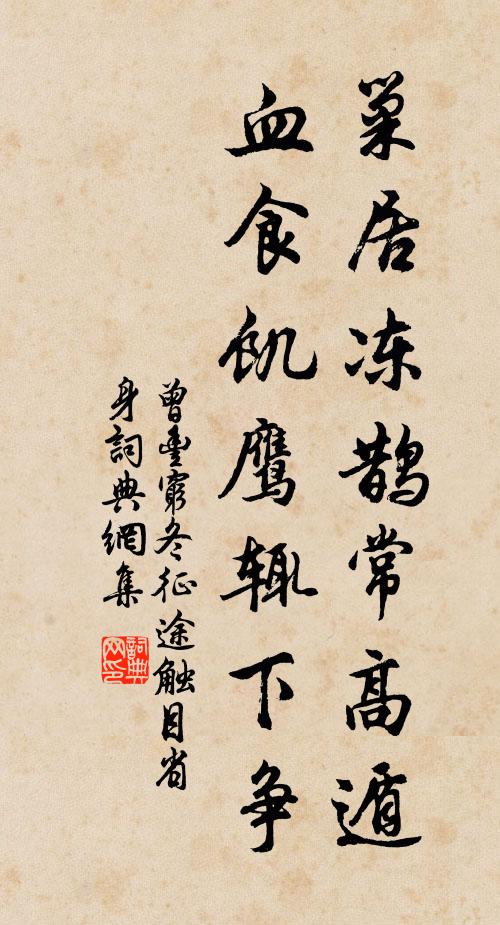 巢居冻鹊常高遁
血食饥鹰辄下争
曾豐窮冬征途触目省
身詞典網集
詞典
网印